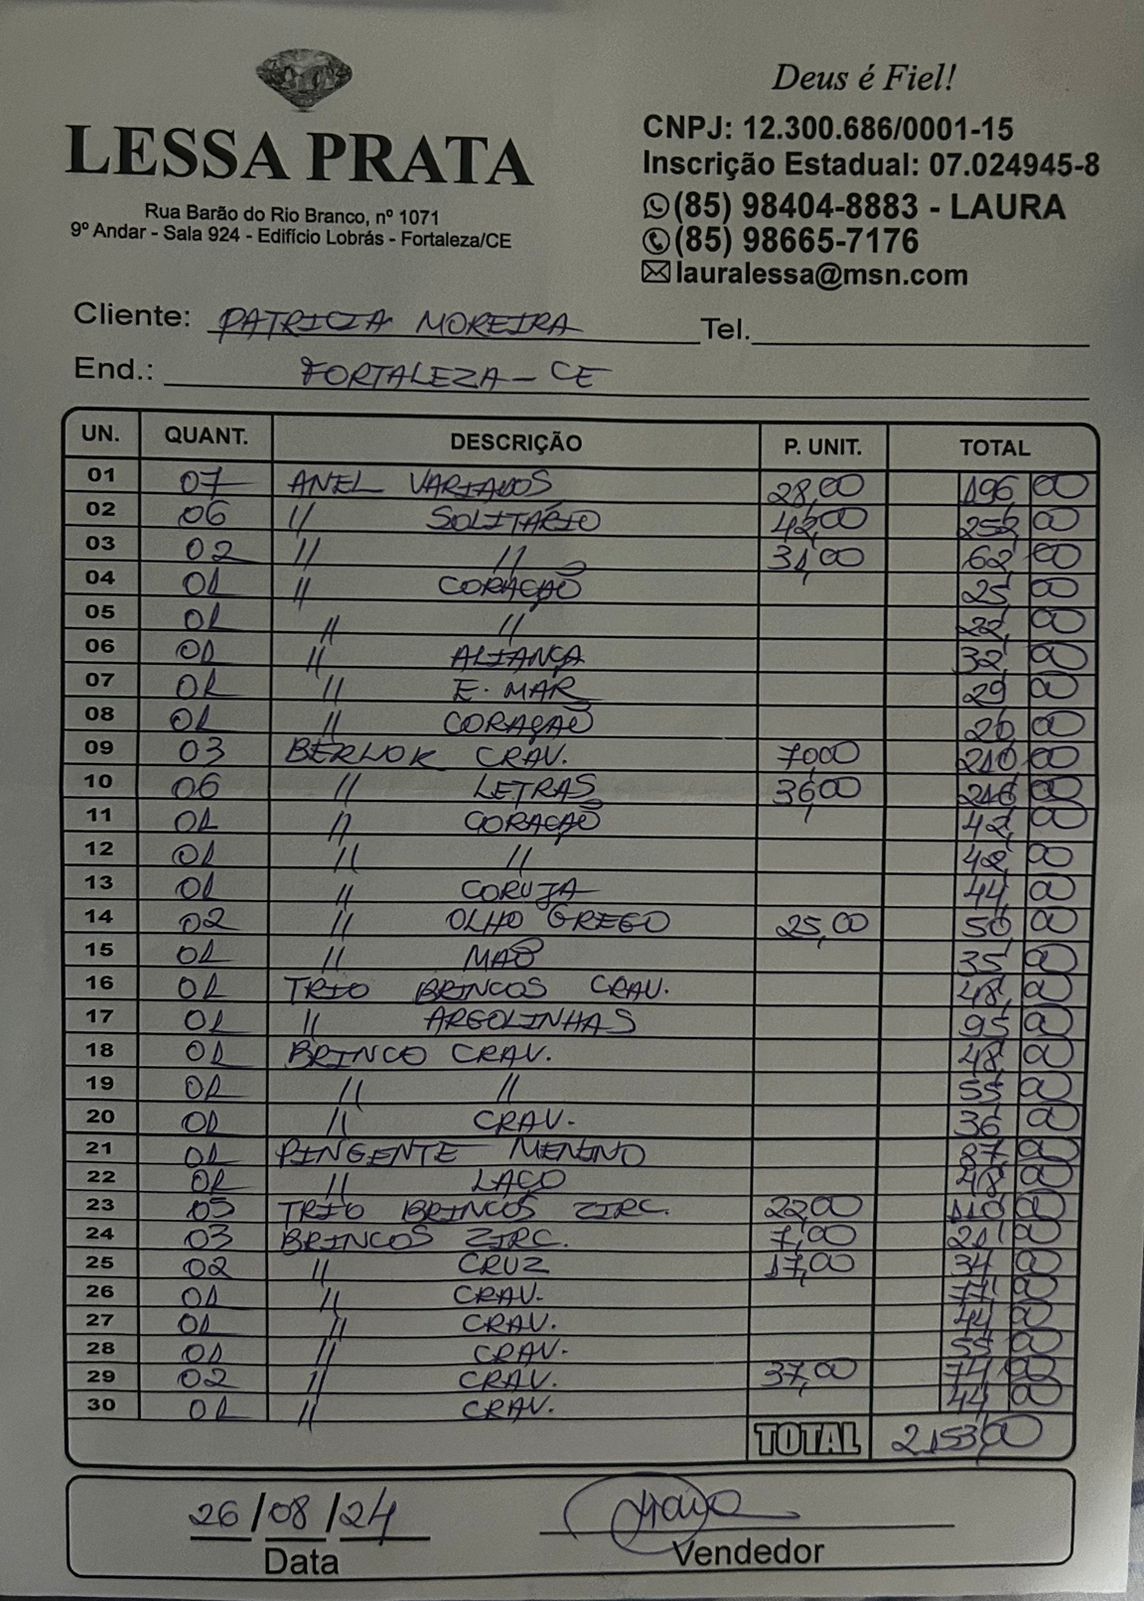 LESSA PRATA
Rua Barão do Rio Branco, nº 1071
9º Andar - Sala 924 - Edifício Lobrás - Fortaleza/CE
Deus é Fiel!
CNPJ: 12.300.686/0001-15
Inscrição Estadual: 07.024945-8
(85) 98404-8883 - LAURA
(85) 98665-7176
lauralessa@msn.com
Cliente: PATRICIA MOREIRA Tel.
End.: FORTALEZA - CE
UN. QUANT. DESCRIÇÃO P. UNIT. TOTAL
01 07 ANEL VARIADOS 28,00 196,00
02 06 // SOLITÁRIO 42,00 252,00
03 02 // // 31,00 62,00
04 01 // CORAÇÃO 25,00
05 01 // // 22,00
06 01 // ALIANÇA 32,00
07 01 // E. MAR 29,00
08 01 // CORAÇÃO 26,00
09 03 BERLOK CRAV. 70,00 210,00
10 06 // LETRAS 36,00 216,00
11 01 // CORAÇÃO 42,00
12 01 // // 42,00
13 01 // CORUJA 44,00
14 02 // OLHO GREGO 25,00 50,00
15 01 // MÃO 35,00
16 01 TRIO BRINCOS CRAV. 48,00
17 01 // ARGOLINHAS 95,00
18 01 BRINCO CRAV. 48,00
19 01 // // 55,00
20 01 // CRAV. 36,00
21 01 PINGENTE MENINO 00
22 01 // LAÇO 48,00
23 05 TRIO BRINCOS ZIRC. 22,00 110,00
24 03 BRINCOS ZIRC. 7,00 21,00
25 02 // CRUZ 17,00 34,00
26 01 // CRAV. 77,00
27 01 // CRAV. 44,00
28 01 // CRAV. 55,00
29 02 // CRAV. 37,00 74,00
30 01 // CRAV. 44,00
TOTAL 2153,00
26/08/24
Data Vendedor